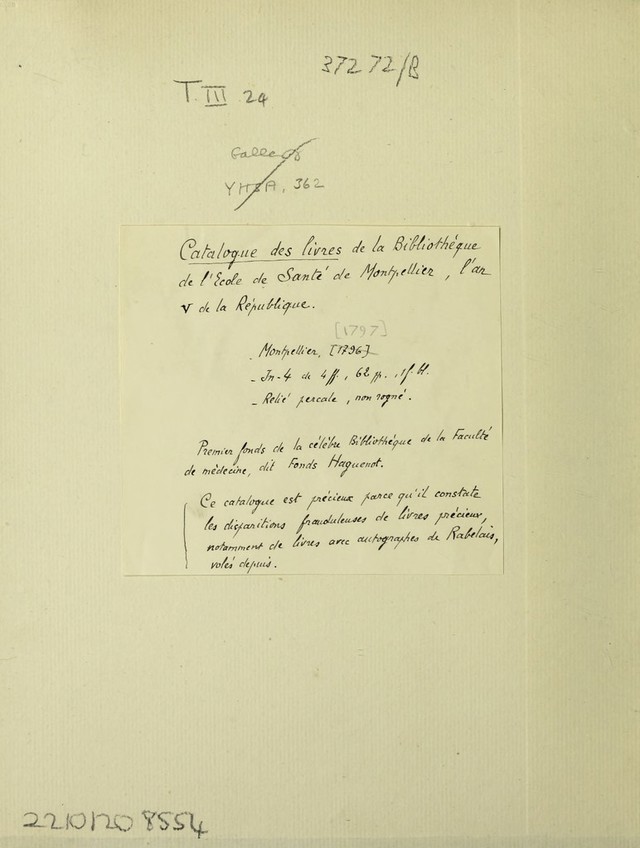 37272/B
T. III 24
YHSA, 362
Catalogue des livres de la Bibliothèque
de l'Ecole de Santé de Montpellier, l'an
V de la République.
[1797]
_ Montpellier, [1796]
_ In-4 de 4 ff., 62 pp., 1 f. bl.
_ Relié percale, non rogné.
Premier fonds de la célèbre Bibliothèque de la Faculté
de médecine, dit Fonds Haguenot.
Ce catalogue est précieux parce qu'il constate
les disparitions frauduleuses de livres précieux,
notamment de livres avec autographes de Rabelais,
volés depuis.
22101208554